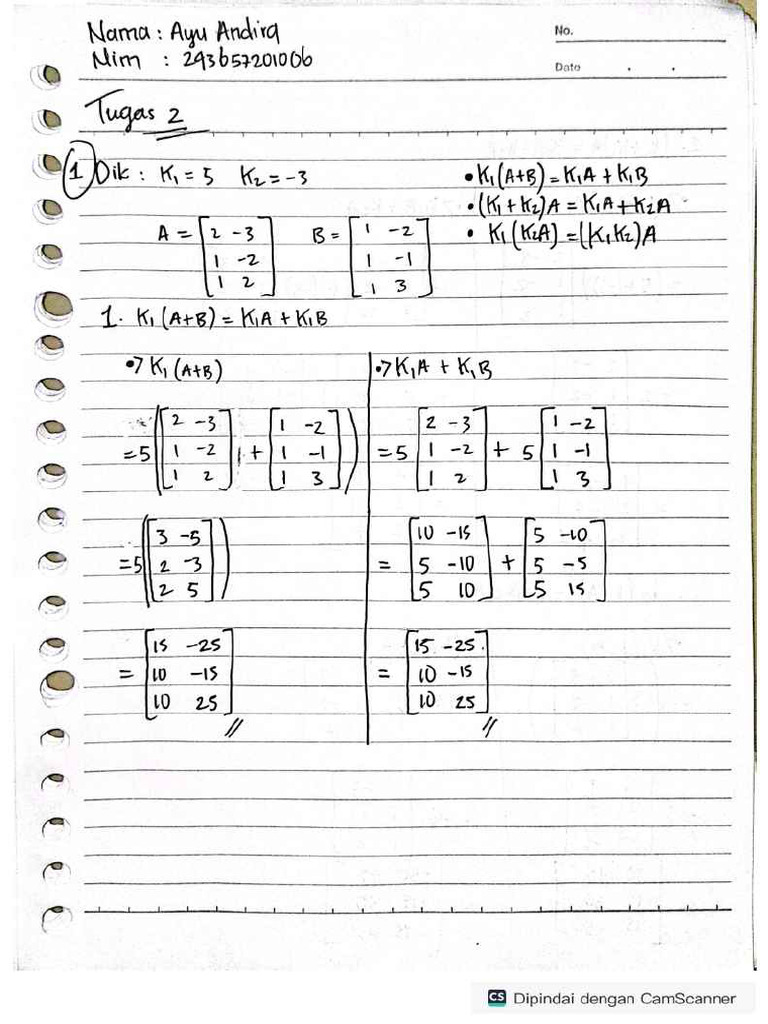 Nama : Ayu Andira
No.
Nim : 293657201006
Date . .
Tugas 2
1 Dik : K₁ = 5 K₂ = -3 • K₁(A+B) = K₁A + K₁B
• (K₁ + K₂)A = K₁A + K₂A
A = [2 -3 B = [1 -2 • K₁(K₂A) = (K₁K₂)A
1 -2 1 -1
1 2] 1 3]
1. K₁(A+B) = K₁A + K₁B
•> K₁(A+B)
= 5([2 -3 + [1 -2
1 -2 1 -1
1 2] 1 3])
= 5([3 -5
2 -3
2 5])
= [15 -25
10 -15
10 25] //
•> K₁A + K₁B
= 5 [2 -3 + 5 [1 -2
1 -2 1 -1
1 2] 1 3]
= [10 -15 + [5 -10
5 -10 5 -5
5 10] 5 15]
= [15 -25
10 -15
10 25] //
CS Dipindai dengan CamScanner